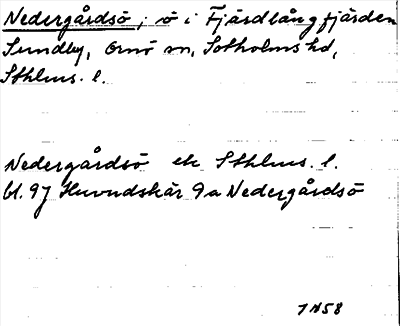 Nedergårdsö, ö i Fjärdlångfjärden
Sundby, Ornö sn, Sotholms hd,
Sthlms. l.
Nedergårdsö ek Sthlms. l.
bl. 97 Huvudskär 9a Nedergårdsö
1958